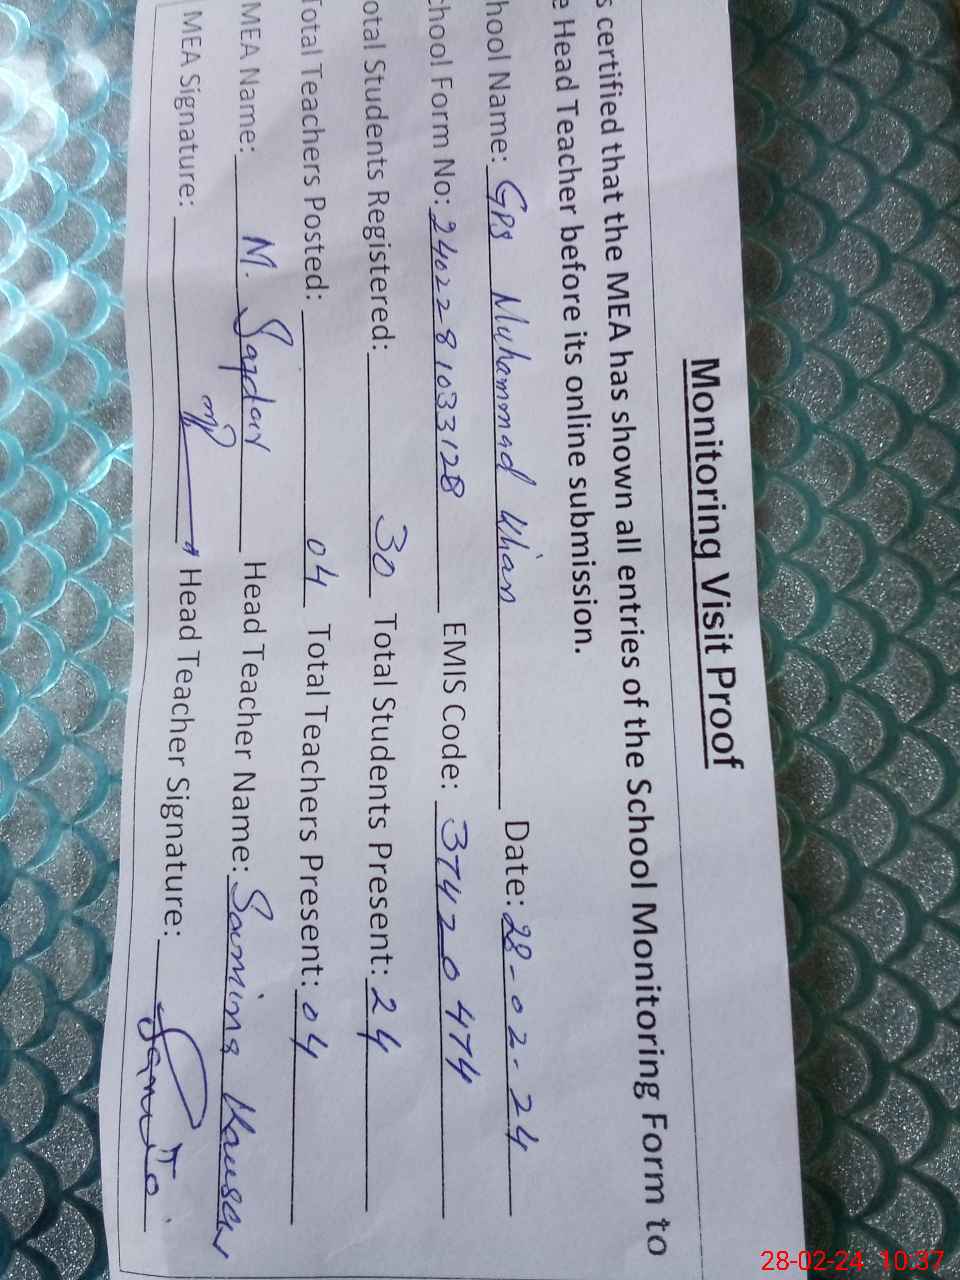 Monitoring Visit Proof
s certified that the MEA has shown all entries of the School Monitoring Form to
e Head Teacher before its online submission.
hool Name: GPS Muhammad Khan Date: 28-02-24
chool Form No: 2402281033128 EMIS Code: 37420474
otal Students Registered: 30 Total Students Present: 24
Total Teachers Posted: 04 Total Teachers Present: 04
MEA Name: M. Head Teacher Name: Kausar
MEA Signature: Head Teacher Signature:
28-02-24 10:37